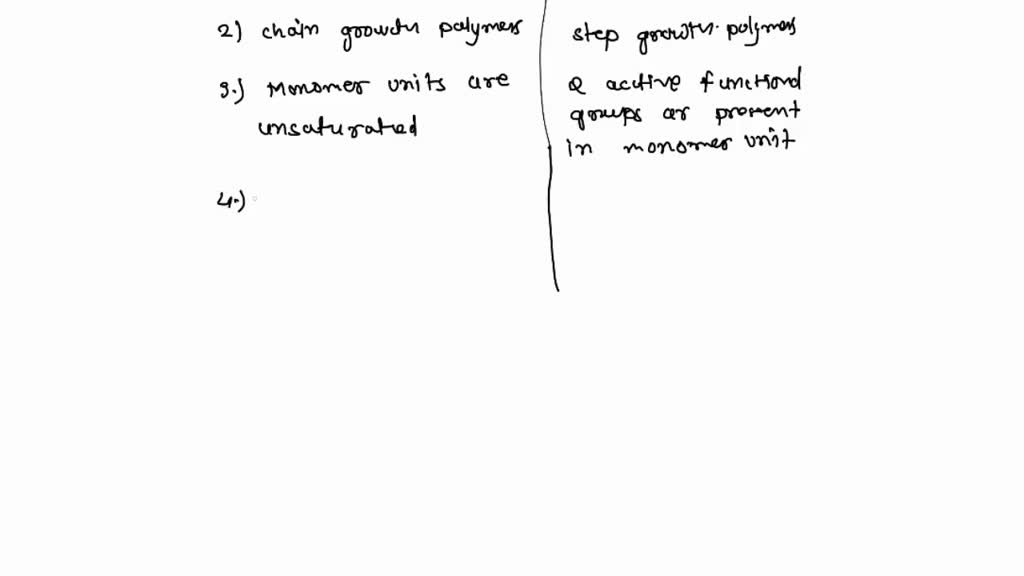 2) chain growth polymers
step growth polymers
3.) Monomer units are
unsaturated
2 active functional
groups ar present
in monomer unit
4.)